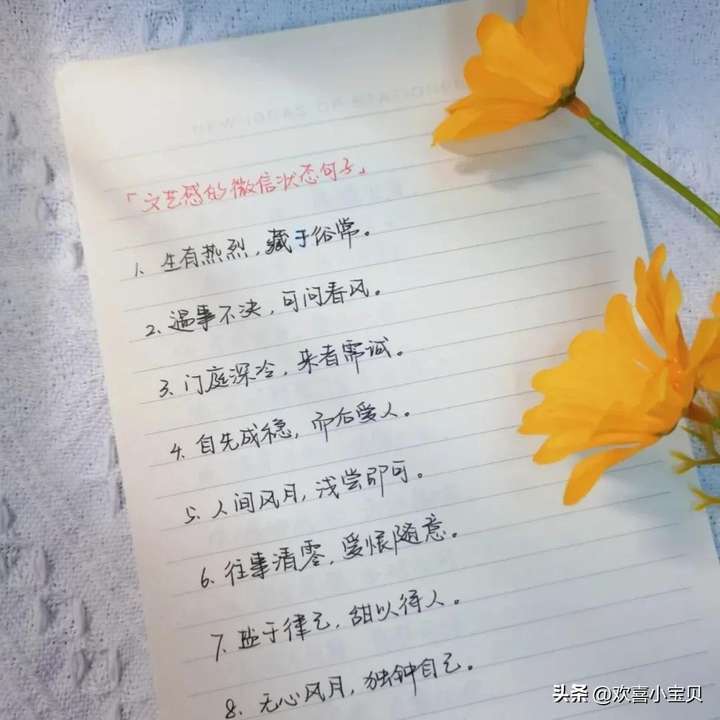 「文艺感的微信状态句子」
1. 生有热烈，藏于俗常。
2. 遇事不决，可问春风。
3. 门庭深冷，来者需诚。
4. 自先成稳，而后爱人。
5. 人间风月，浅尝即可。
6. 往事清零，爱恨随意。
7. 盐于律己，甜以待人。
8. 无心风月，独钟自己。
头条 @欢喜小宝贝